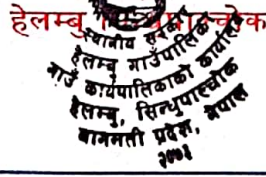 हेलम्बु
स्थानीय सरकार
हेलम्बु गाउँपालिका
गाउँ कार्यपालिकाको कार्यालय
हेलम्बु, सिन्धुपाल्चोक
बागमती प्रदेश, नेपाल
२०७३